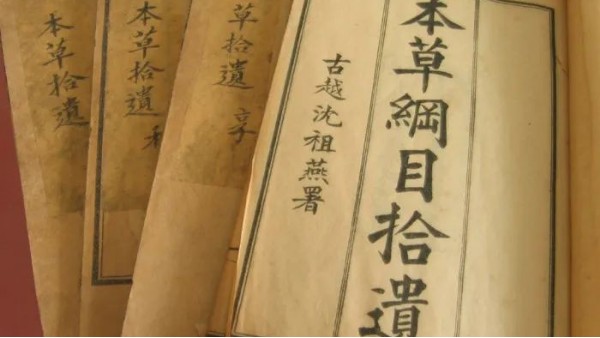 本草綱目拾遺
古越沈祖燕署
草拾遺
本草拾遺
本草拾遺